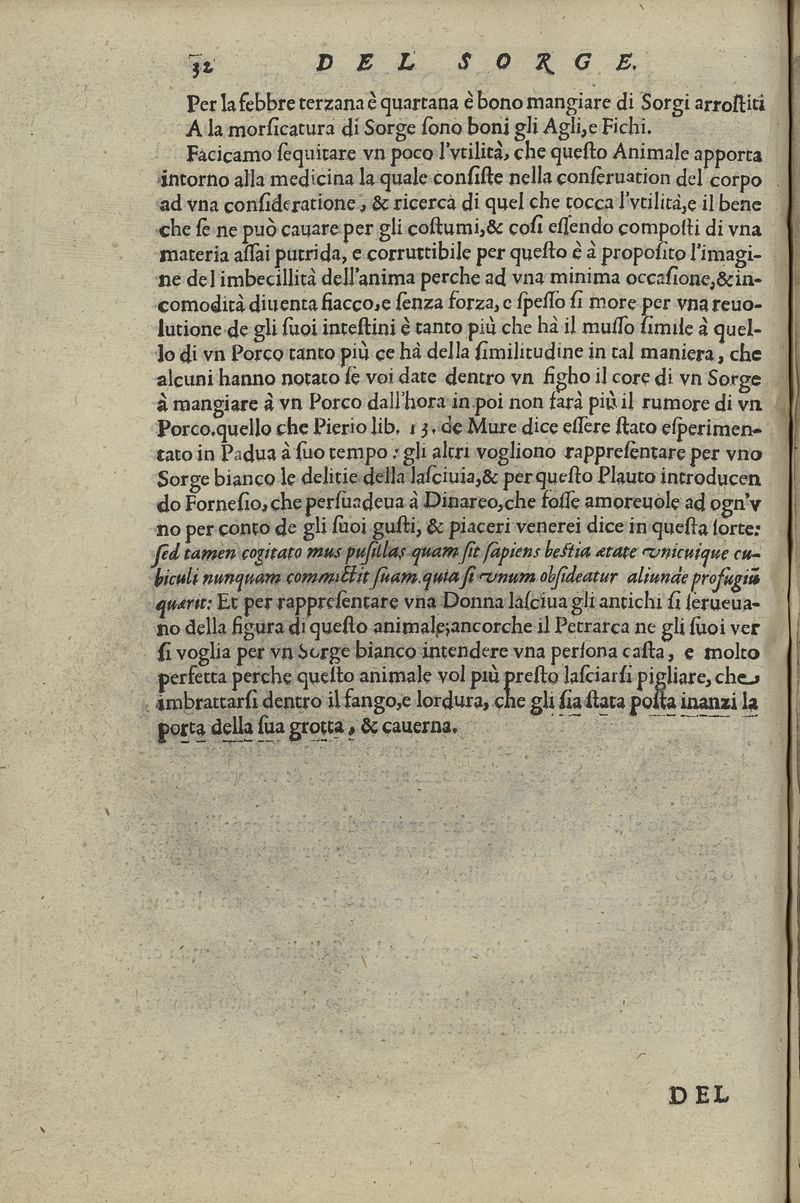 32 DEL SORGE.
Per la febbre terzana è quartana è bono mangiare di Sorgi arroſtiti
A la morſicatura di Sorge ſono boni gli Agli, e Fichi.
Facicamo ſequitare vn poco l'vtilità, che queſto Animale apporta
intorno alla medicina la quale conſiſte nella conſeruation del corpo
ad vna conſideratione, & ricerca di quel che tocca l'vtilità, e il bene
che ſe ne può cauare per gli coſtumi, & coſi eſſendo compoſti di vna
materia aſſai putrida, e corruttibile per queſto è à propoſito l'imagi-
ne del imbecillità dell'anima perche ad vna minima occaſione, & in-
comodità diuenta fiacco, e ſenza forza, e ſpeſſo ſi more per vna reuo-
lutione de gli ſuoi inteſtini è tanto più che hà il muſſo ſimile à quel-
lo di vn Porco tanto più ce hà della ſimilitudine in tal maniera, che
alcuni hanno notato ſè voi date dentro vn figho il core di vn Sorge
à mangiare à vn Porco dall'hora in poi non farà più il rumore di vn
Porco. quello che Pierio lib. 13. de Mure dice eſſere ſtato eſperimen-
tato in Padua à ſuo tempo: gli altri vogliono rappreſentare per vno
Sorge bianco le delitie della laſciuia, & per queſto Plauto introducen
do Forneſio, che perſuadeua à Dinareo, che foſſe amoreuole ad ogn'v
no per conto de gli ſuoi guſti, & piaceri venerei dice in queſta ſorte:
ſed tamen cogitato mus puſillas quam ſit ſapiens beſtia ætate vnicuique cu-
biculi nunquam committit ſuam. quia ſi vnum obſideatur aliunde profugiũ
quærit: Et per rappreſentare vna Donna laſciua gli antichi ſi ſerueua-
no della figura di queſto animale; ancorche il Petrarca ne gli ſuoi ver
ſi voglia per vn Sorge bianco intendere vna perſona caſta, e molto
perfetta perche queſto animale vol più preſto laſciarſi pigliare, che
imbrattarſi dentro il fango, e lordura, che gli ſia ſtata poſta inanzi la
porta della ſua grotta, & cauerna.
DEL